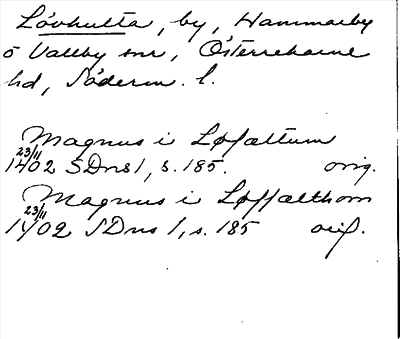 Lövhulta, by, Hammarby
o Vallby snr, Österrekarne
hd, Söderm. l.
Magnus i Løfaltum
23/11
1402 SDns 1, s. 185. orig.
Magnus i Løffalthom
23/11
1402 SDns 1, s. 185 orig.